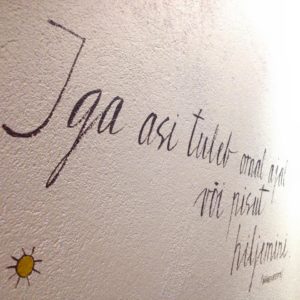 Iga asi tuleb omal ajal
või pisut
hiljemini